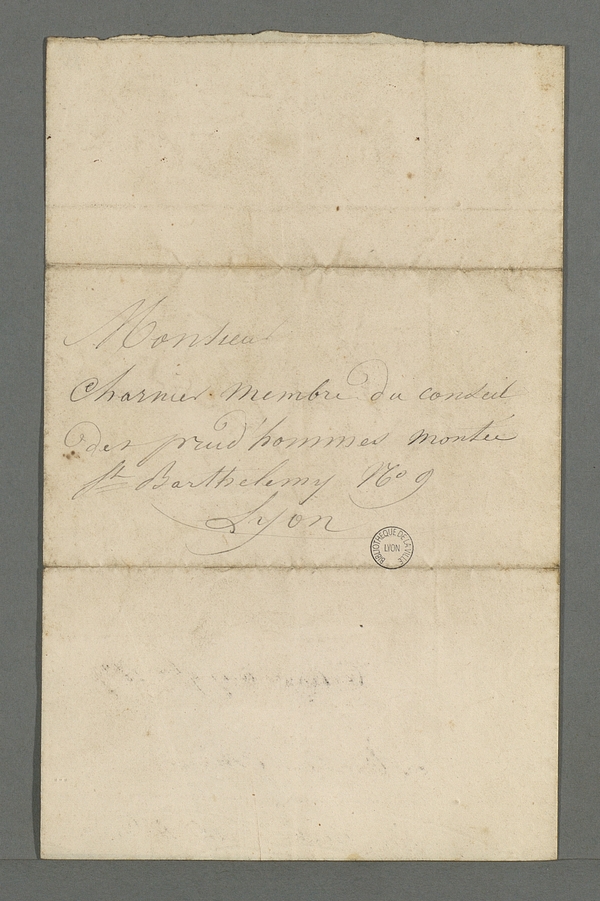 Monsieur
Charnier membre du conseil
des prud'hommes montée
St Barthelemy No 9
Lyon
BIBLIOTHEQUE DE LA VILLE
LYON